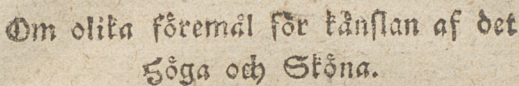 Om olika föremål för känslan af det
Höga och Sköna.